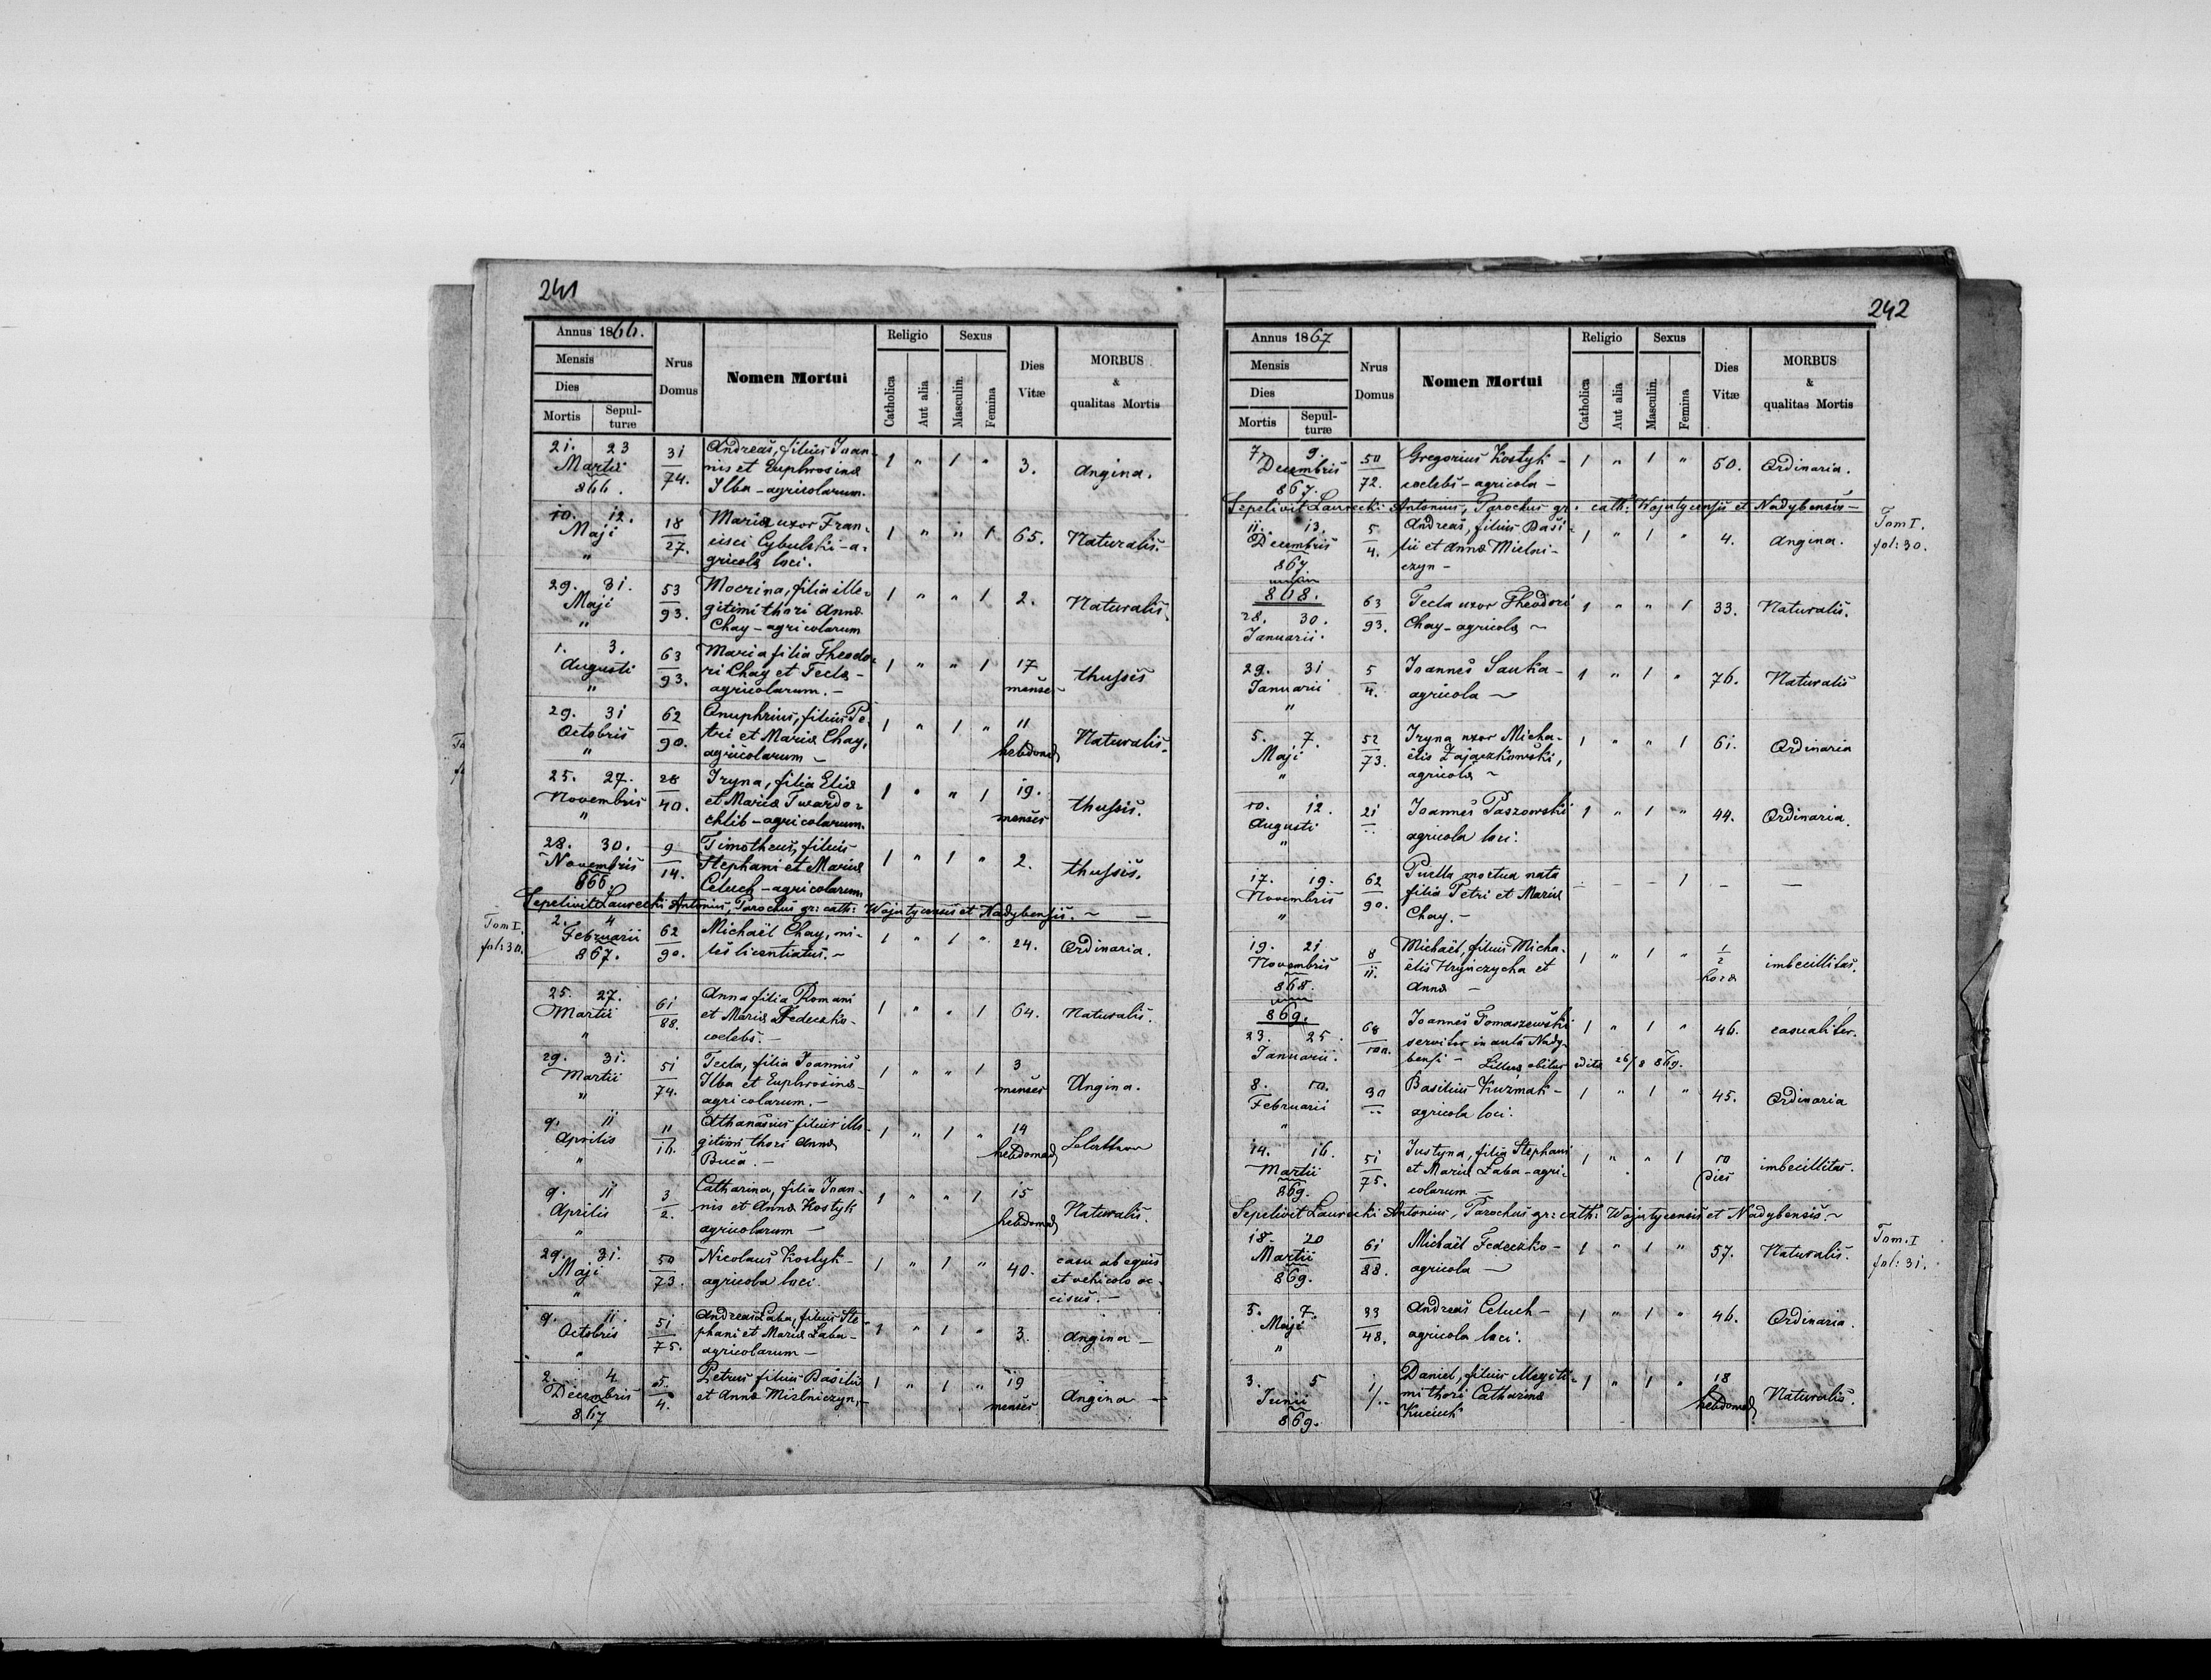 241
Annus 1866.
Mensis
Dies
Mortis
Sepulturæ
Nrus Domus
Nomen Mortui
Religio
Catholica
Aut alia
Sexus
Masculin.
Femina
Dies Vitæ
MORBUS & qualitas Mortis
21. 23 31 Andreas, filius Ioan- 1 " 1 " 3. Angina.
Martii 74. nis et Euphrosinæ
866. Ilba - agricolarum.
10. 12. 18 Maria uxor Fran- 1 " " 1 65. Naturalis.
Maji 27. cisci Cybulski - a-
" gricolæ loci.
29. 31. 53 Mocrina, filia ille- 1 " " 1 2. Naturalis.
Maji 93. gitimi thori Annæ
" Chay - agricolarum
1. 3. 63 Maria filia Theodo- 1 " " 1 17 thussis
Augusti 93. ri Chay et Teclæ - menses
" agricolarum. -
29. 31 62 Onuphrius, filius Pe- 1 " 1 " 11 Naturalis.
Octobris 90. tri et Mariæ Chay, hebdomad
" agricolarum -
25. 27. 28 Iryna, filia Eliæ 1 " " 1 19. thussis.
Novembris 40. et Mariæ Twardo- menses
" chlib - agricolarum.
28. 30. 9 Timotheus, filius 1 " 1 " 2. thussis.
Novembris 14. Stephani et Mariæ
866. Celuch - agricolarum.
Sepelivit Laurecki Antonius, Parochus gr: cath: Wojutycensis et Nadybensis. -
Tom I. fol: 30.
2. 4 62 Michaël Chay, mi- 1 " 1 " 24. Ordinaria.
Februarii 90. les licentiatus. -
867.
25. 27. 61 Anna filia Romani 1 " " 1 64. Naturalis.
Martii 88. et Mariæ Fedeczko -
" coelebs. -
29. 31. 51 Tecla, filia Ioannis 1 " " 1 3 Angina.
Martii 74. Ilba et Euphrosinæ - menses
" agricolarum. -
9. 11 11 Athanasius filius ille- 1 " 1 " 14
Aprilis 16. gitimi thori Annæ hebdomad
" Buca. -
9. 11 3 Catharina, filia Ioan- 1 " " 1 15 Naturalis.
Aprilis 2. nis et Annæ Kostyk hebdomad
" agricolarum -
29. 31. 50 Nicolaus Kostyk - 1 " 1 " 40. casu ab equis
Maji 73. agricola loci. et vehiculo oc-
" cisus. -
9. 11. 51 Andreas Łaba, filius Ste- 1 " 1 " 3. Angina -
Octobris 75. phani et Mariæ Łaba -
" agricolarum -
2. 4 5. Petrus filius Basilii 1 " 1 " 19 Angina -
Decembris 4. et Annæ Mielniczyn. - menses
867
242
Annus 1867
Mensis
Dies
Mortis
Sepulturæ
Nrus Domus
Nomen Mortui
Religio
Catholica
Aut alia
Sexus
Masculin.
Femina
Dies Vitæ
MORBUS & qualitas Mortis
7 9. 50 Gregorius Kostyk - 1 " 1 " 50. Ordinaria.
Decembris 72. coelebs - agricola -
867.
Sepelivit Laurecki Antonius, Parochus gr. cath. Wojutycensis et Nadybensis -
Tom I. fol: 30.
11. 13. 5 Andreas, filius Basi- 1 " 1 " 4. Angina.
Decembris 4. lii et Annæ Mielni-
867 czyn -
868.
28. 30. 63 Tecla uxor Theodori 1 " " 1 33. Naturalis.
Januarii. 93. Chay - agricolæ -
29. 31 5 Ioannes Sauka - 1 " 1 " 76. Naturalis
Januarii 4. agricola -
"
5. 7. 52 Iryna uxor Micha- 1 " " 1 61. Ordinaria
Maji 73. ëlis Zajaczkowski,
" agricolæ -
10. 12. 21 Ioannes Paszowski 1 " 1 " 44. Ordinaria.
Augusti agricola loci.
"
17. 19. 62 Puella mortua nata - - - 1 - -
Novembris 90. filia Petri et Mariæ
" Chay. -
19. 21 8 Michaël, filius Micha- 1 " 1 " 1/2 imbecillitas.
Novembris 11. ëlis Hrynczycha et horæ
868. Annæ -
869.
23. 25. 68 Ioannes Tomaszewski 1 " 1 " 46. casualiter.
Januarii. servitor in aula Nady-
bensi - Litteræ obitus editæ 26/8 869.
8. 10. 30 Basilius Kuźmak - 1 " 1 " 45. Ordinaria
Februarii agricola loci.
"
14. 16. 51 Iustyna, filia Stephani 1 " " 1 10 imbecillitas.
Martii 75. et Mariæ Łaba - agri- dies
869. colarum -
Sepelivit Laurecki Antonius, Parochus gr: cath: Wojutycensis et Nadybensis. -
Tom. I fol: 31.
18. 20 61 Michaël Fedeczko - 1 " 1 " 57. Naturalis.
Martii 88. agricola -
869.
5. 7. 33 Andreas Celuch - 1 " 1 " 46. Ordinaria.
Maji 48. agricola loci.
"
3. 5 Daniel, filius illegiti- 1 " 1 " 18 Naturalis.
Junii mi thori Catharinæ hebdomad
869. Kuciuk